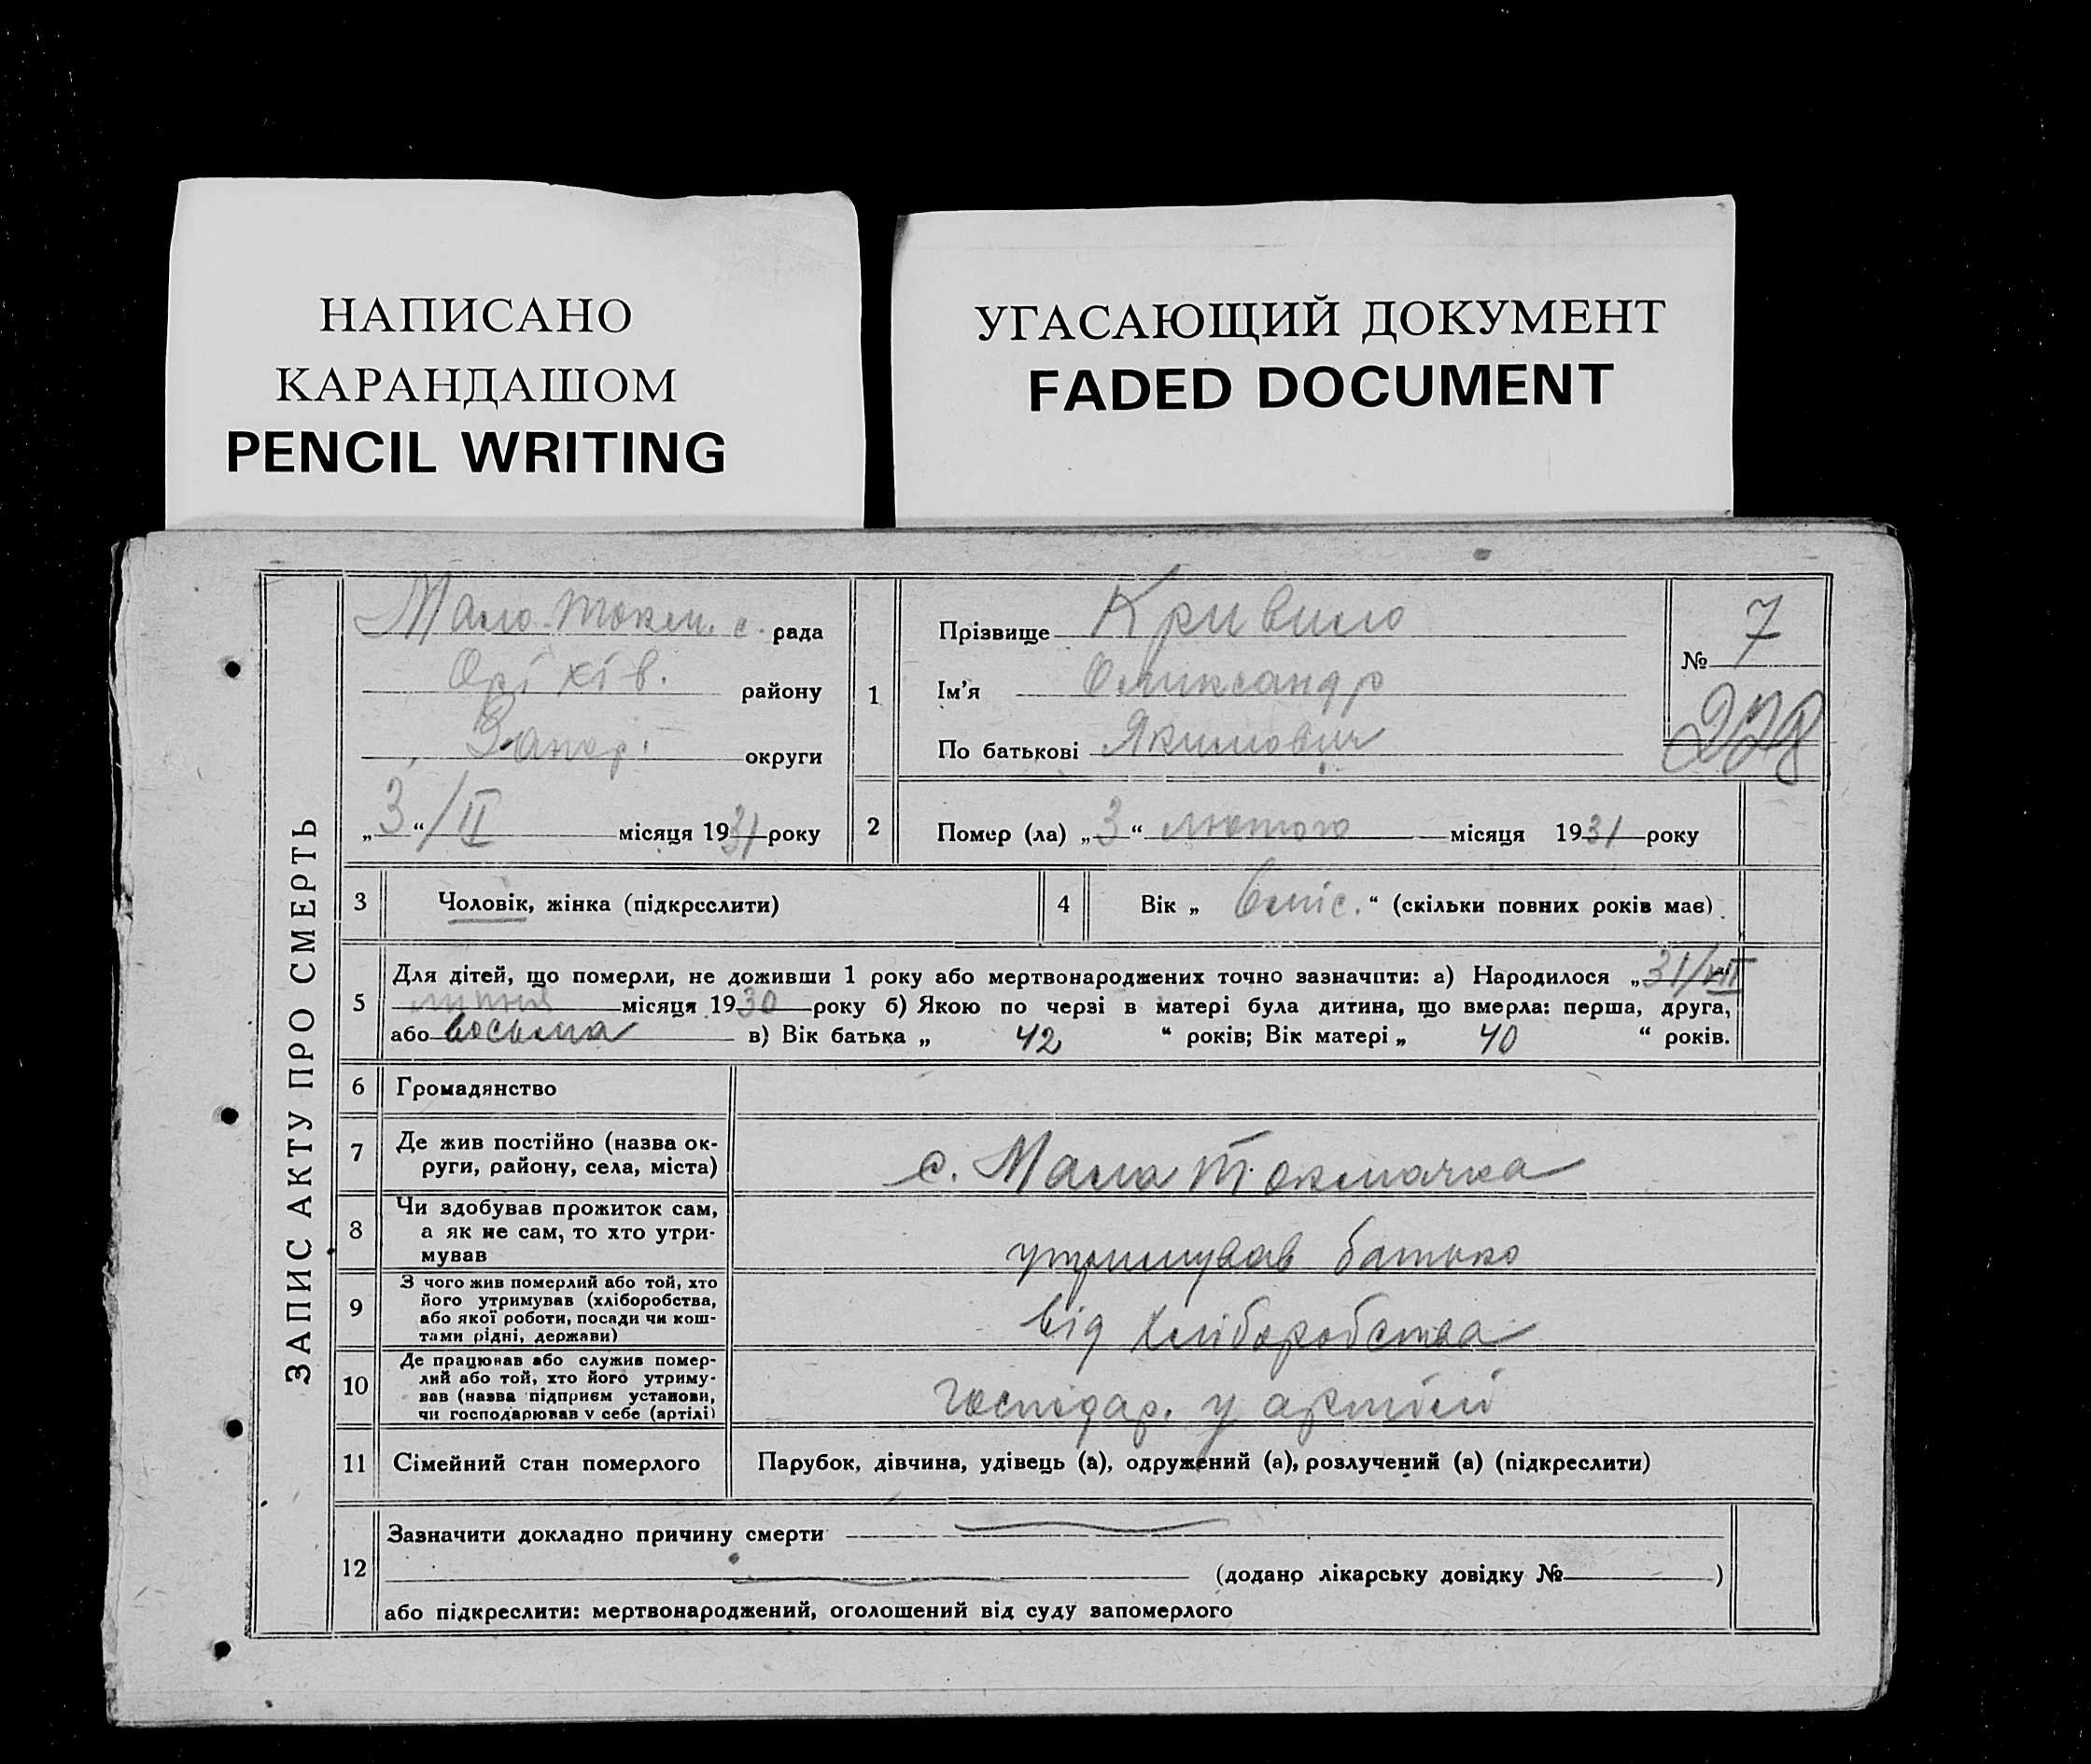 НАПИСАНО
КАРАНДАШОМ
PENCIL WRITING
УГАСАЮЩИЙ ДОКУМЕНТ
FADED DOCUMENT
ЗАПИС АКТУ ПРО СМЕРТЬ
Мало-Токм. с. рада
Оріхів. району
Запор. округи
„3“/II місяця 1931 року
1
Прізвище Кривило
Ім'я Олександр
По батькові Якимович
№ 7
228
2 Помер (ла) „3“ лютого місяця 1931 року
3 Чоловік, жінка (підкреслити)
4 Вік „6 міс.“ (скільки повних років має)
5 Для дітей, що померли, не доживши 1 року або мертвонароджених точно зазначити: а) Народилося „31/VII
липня місяця 1930 року б) Якою по черзі в матері була дитина, що вмерла: перша, друга,
або восьма в) Вік батька „ 42 “ років; Вік матері „ 40 “ років.
6 Громадянство
7 Де жив постійно (назва ок-
руги, району, села, міста)
с. Мала Токмачка
8 Чи здобував прожиток сам,
а як не сам, то хто утри-
мував
утримував батько
9 З чого жив померлий або той, хто
його утримував (хліборобства,
або якої роботи, посади чи кош-
тами рідні, держави)
від хліборобства
10 Де працював або служив помер-
лий або той, хто його утриму-
вав (назва підприєм установи,
чи господарював у себе (артілі)
господар. у артілі
11 Сімейний стан померлого
Парубок, дівчина, удівець (а), одружений (а), розлучений (а) (підкреслити)
12 Зазначити докладно причину смерти
(додано лікарську довідку № )
або підкреслити: мертвонароджений, оголошений від суду запомерлого